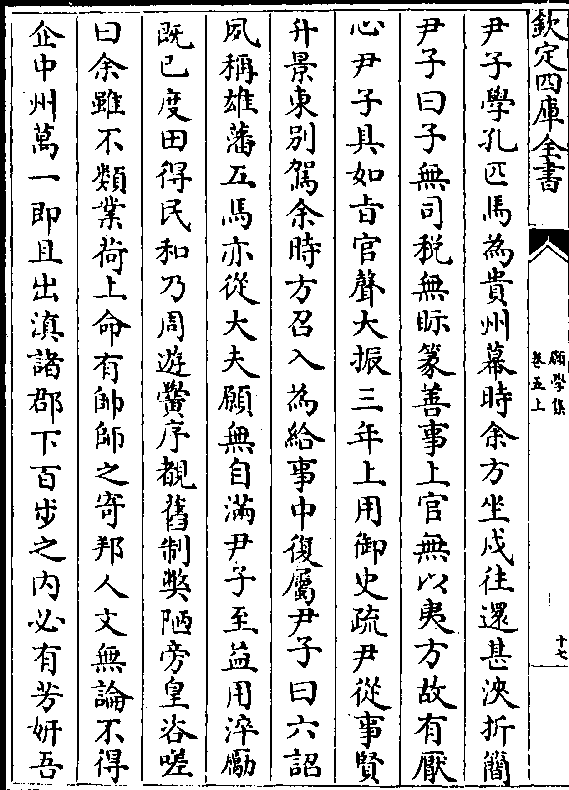 欽定四庫全書
願學集
卷五上
十七
尹子學孔匹馬為貴州幕時余方坐戍往還甚浹折簡
尹子曰子無司税無眎篆善事上官無以夷方故有厭
心尹子具如㫖官聲大振三年上用御史疏尹從事賢
升景東别駕余時方召入為給事中復屬尹子曰六詔
夙稱雄藩五馬亦從大夫願無自滿尹子至益用淬勵
既已度田得民和乃周遊黌序覩舊制獘陋旁皇咨嗟
曰余雖不類業荷上命有帥師之寄邦人文無論不得
企中州萬一即且出滇諸郡下百步之内必有芳妍吾